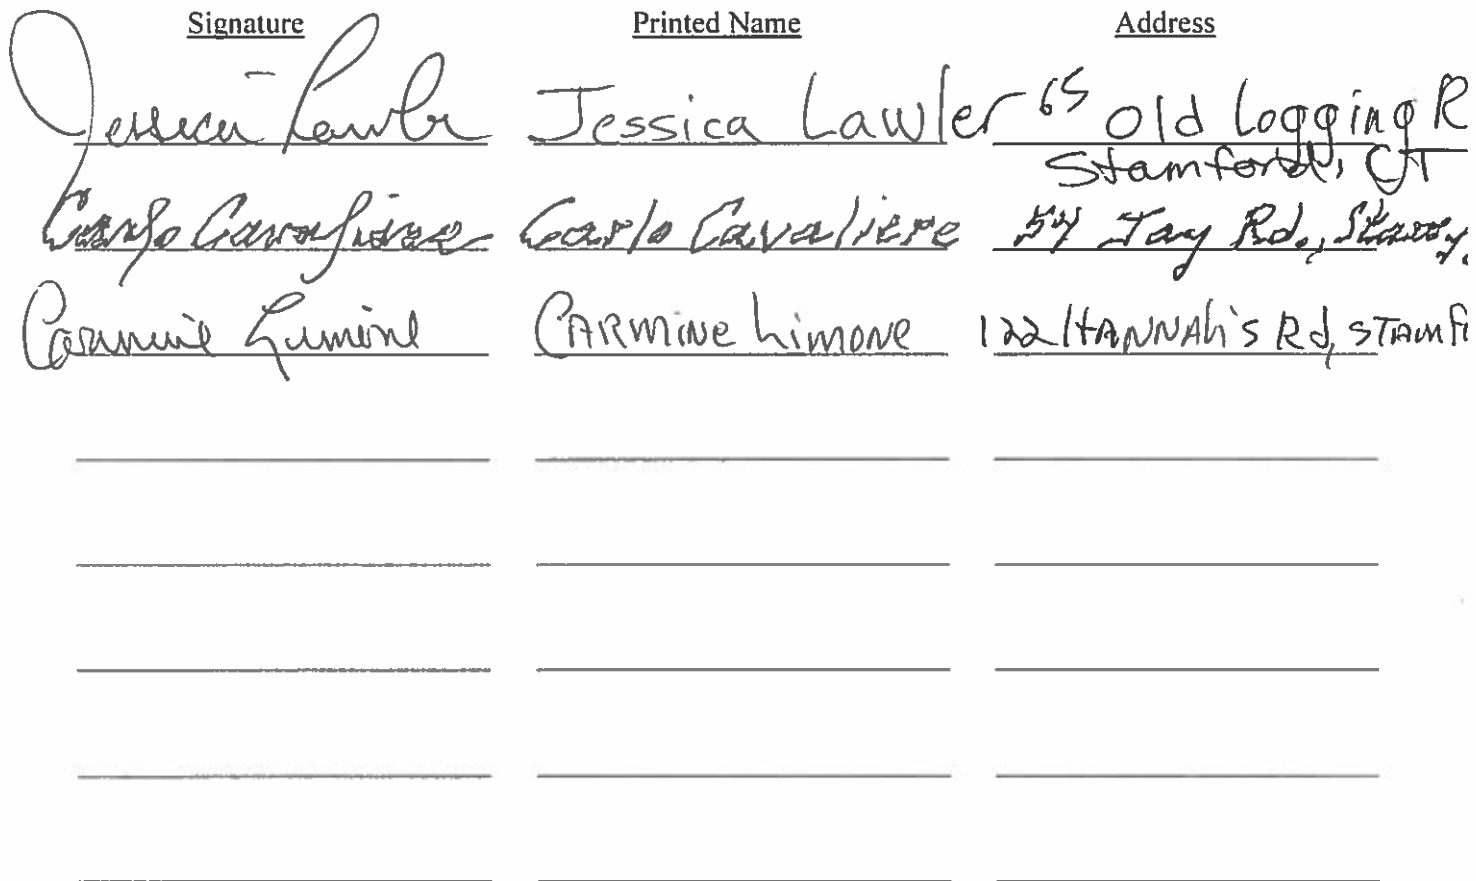 Signature Printed Name Address
Jessica Lawler Jessica Lawler 65 Old Logging R
Stamford, CT
Carlo Cavaliere Carlo Cavaliere 54 Jay Rd.,
Carmine Limone CARMINE Limone 122 HANNAh's Rd, STAMf